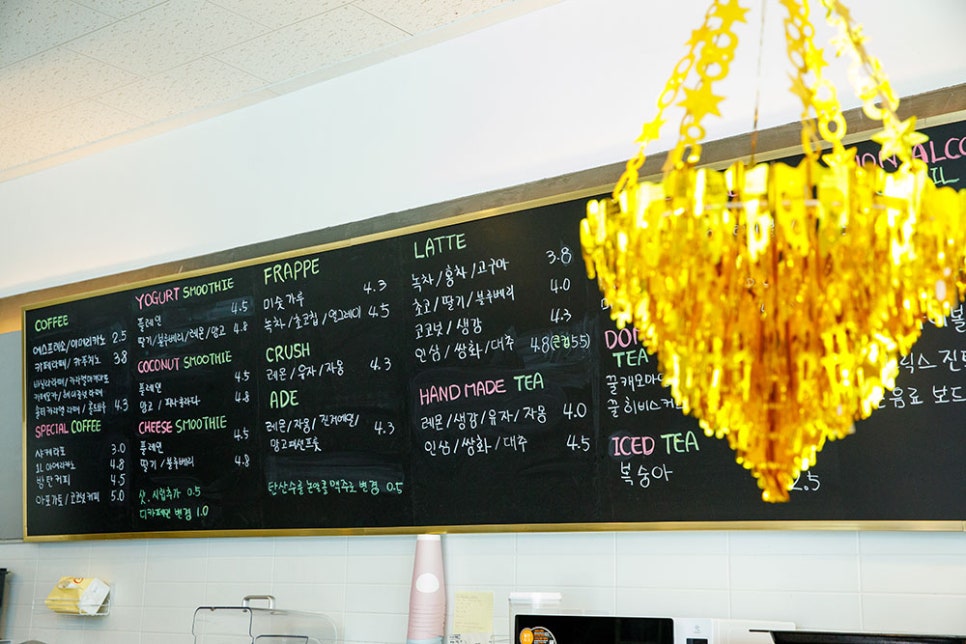 COFFEE
에스프레소/아메리카노 2.5
카페라떼/카푸치노 3.8
4.3
SPECIAL COFFEE
샤케라또 3.0
1L 아메리카노 4.8
방탄커피 4.5
아포가토/코코넛커피 5.0
YOGURT SMOOTHIE
플레인 4.5
딸기/블루베리/레몬/망고 4.8
COCONUT SMOOTHIE
플레인 4.5
망고 4.8
CHEESE SMOOTHIE
플레인 4.5
딸기/블루베리 4.8
샷, 시럽추가 0.5
디카페인 변경 1.0
FRAPPE
미숫가루 4.3
녹차/초코칩/얼그레이 4.5
CRUSH
레몬/유자/자몽 4.3
ADE
레몬/자몽/진저에일/
망고패션프룻 4.3
탄산수를 논알콜 맥주로 변경 0.5
LATTE
녹차/홍차/고구마 3.8
초코/딸기/블루베리 4.0
코코넛/생강 4.3
인삼/쌍화/대추 4.8 5.5
HAND MADE TEA
레몬/생강/유자/자몽 4.0
인삼/쌍화/대추 4.5
TEA
꿀캐모마
꿀히비스커
ICED TEA
복숭아 2.5